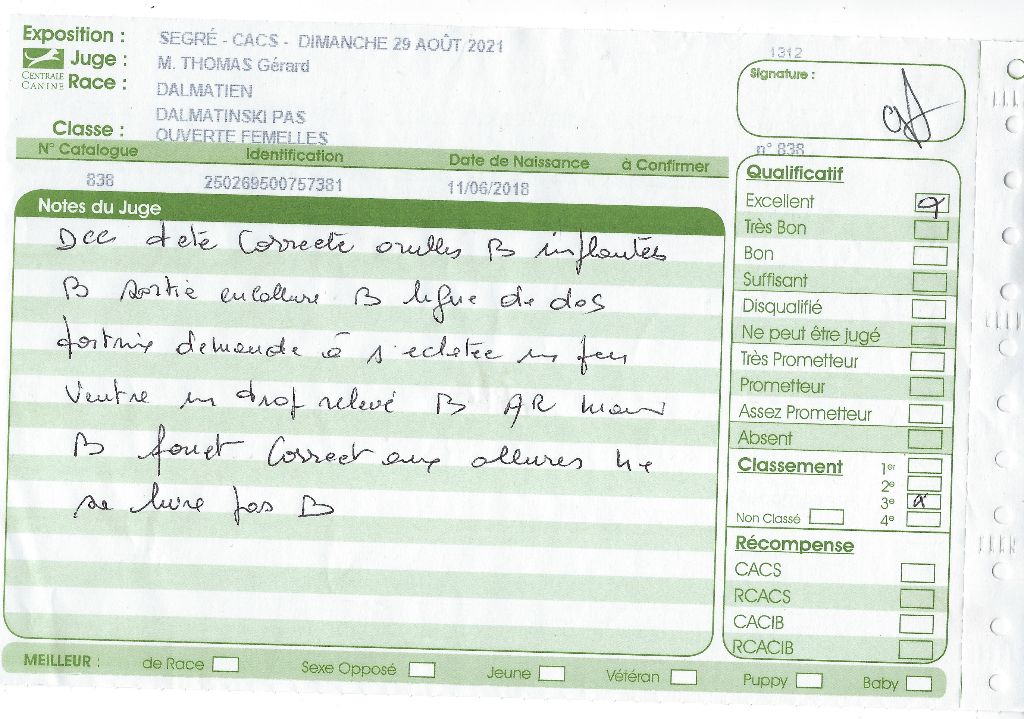 Exposition : SEGRÉ - CACS - DIMANCHE 29 AOÛT 2021
Juge : M. THOMAS Gérard
CENTRALE CANINE
Race : DALMATIEN
DALMATINSKI PAS
Classe : OUVERTE FEMELLES
1312
Signature :
N° Catalogue Identification Date de Naissance à Confirmer
838 250269500757381 11/06/2018
n° 838
Notes du Juge
tete Correcte oreilles B implantées
B sortie encolure B ligne de dos
poitrine demande à s'eclatée un peu
Ventre un relevé B AR
B fouet Correct aux allures ne
se livre pas B
Qualificatif
Excellent
Très Bon
Bon
Suffisant
Disqualifié
Ne peut être jugé
Très Prometteur
Prometteur
Assez Prometteur
Absent
Classement 1er
2e
3e
Non Classé 4e
Récompense
CACS
RCACS
CACIB
RCACIB
MEILLEUR : de Race Sexe Opposé Jeune Vétéran Puppy Baby